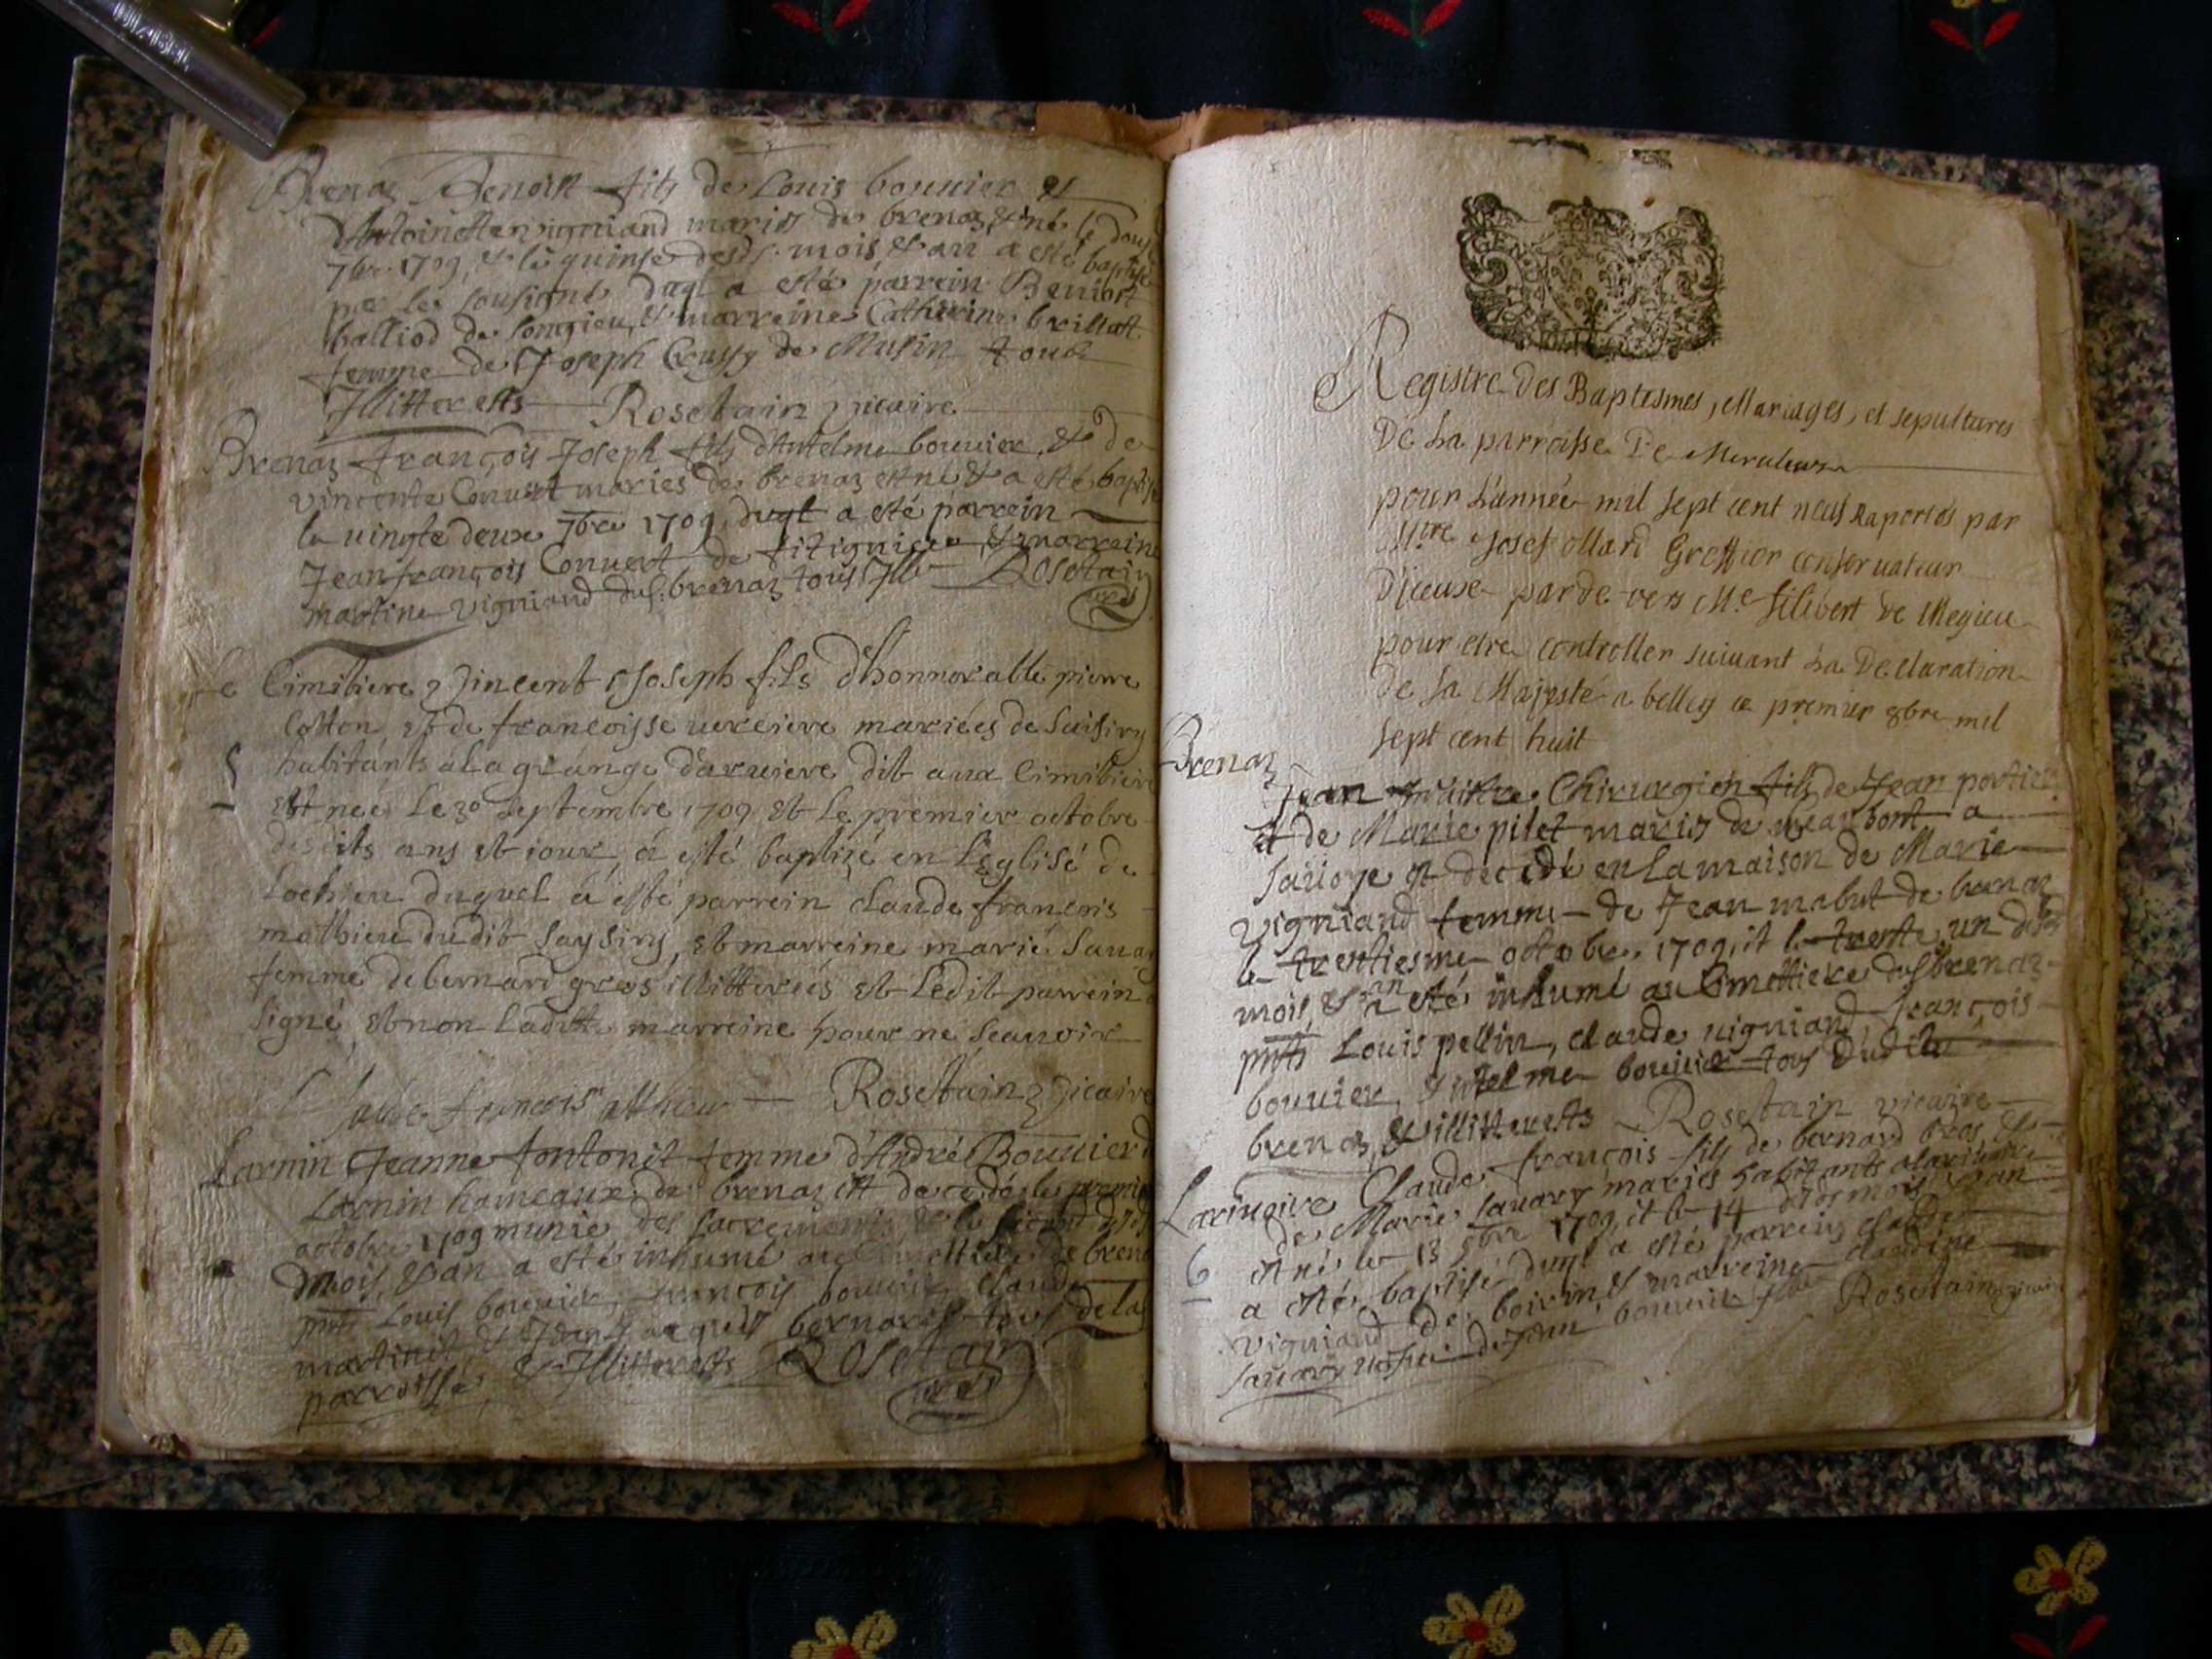 Brenaz Benoist fils de Louis bouuier &
d'Antoinette vigniand mariés de brenaz, est né le douse
7bre 1709, & le quinse desds. mois & an a esté baptisé
par le sousigné duql a esté parrein Benoist
balliod de songieu, & marreine Catherine brillatt
femme de Joseph Crussy de Musin tous
Illitterests Rosetain vicaire
Brenaz françois Joseph fils d'Antelme bouuier & de
vincente Conuert mariés de brenaz est né & a esté baptisé
le uingte deux 7bre 1709 duql a esté parrein
Jean françois Conuert de & marreine
martine vigniand dud. brenaz tous Illit Rosetain
vicre
le Cimitiere vincent Joseph fils d'honnorable pierre
Cotton et de francoisse mariées de
habitants a la grange d'aruiere dit aux Cimitiere
5
est neé le 30 septembre 1709 et le premier octobre
desdits ans et iour, a esté baptizé en l'eglise de
Lochieu duquel a esté parrein claude francois
mathieu dudit et marreine marie Sauary
femme de bernard gros illitterées et ledit parrein a
signé, et non laditte marreine pour ne scauoir
Claude francois Rosettain vicaire
Larnin Jeanne fontonet femme d'André Bouuier d
Larnin hameaux de brenaz est decedé le premier
octobre 1709 munie des sacrements, & le second dud
mois, & an a esté inhumé au Cimettiere de brenaz
pnts Louis bouuier, francois bouuier, claude
martinet, & Jean Jacques bernard tous de la
parroisse, & Illitterests Rosetain
vicre
Registre des Baptesmes, Mariages, et sepultures
De La parroisse De
pour L'année mil sept cent neuf Raportés par
Mtre Josef ollard Greffier conseruateur
D'iceux par de vers Me filibert de Megieu
pour etre controller suiuant La Declaration
de sa Majesté a belley ce premier 8bre mil
sept cent huit
Brenaz
Jean maitre Chirurgien fils de Jean portier
et de Marie pilet mariés de a
sauoye est decedé en la maison de Marie
vigniand femme de Jean mabut de brenaz
le trentiesme octobre 1709, et le trente un desds
mois, & an a esté inhumé au Cimettiere dud brenaz
pnts Louis pellin, claude uigniand, françois
bouuier, & Antelme bouuier tous dudit
brenaz, & illitterests Rosetain vicaire
Laruieire Claude françois fils de bernard Gros, &
de Marie sauary mariés habitants
est né le 13 9bre 1709, et le 14 desds mois & an
6
a esté baptisé duql a esté parrein claude
vigniand de boirin & marreine claudine
sauary de Jean bouuier Rosetain vicaire